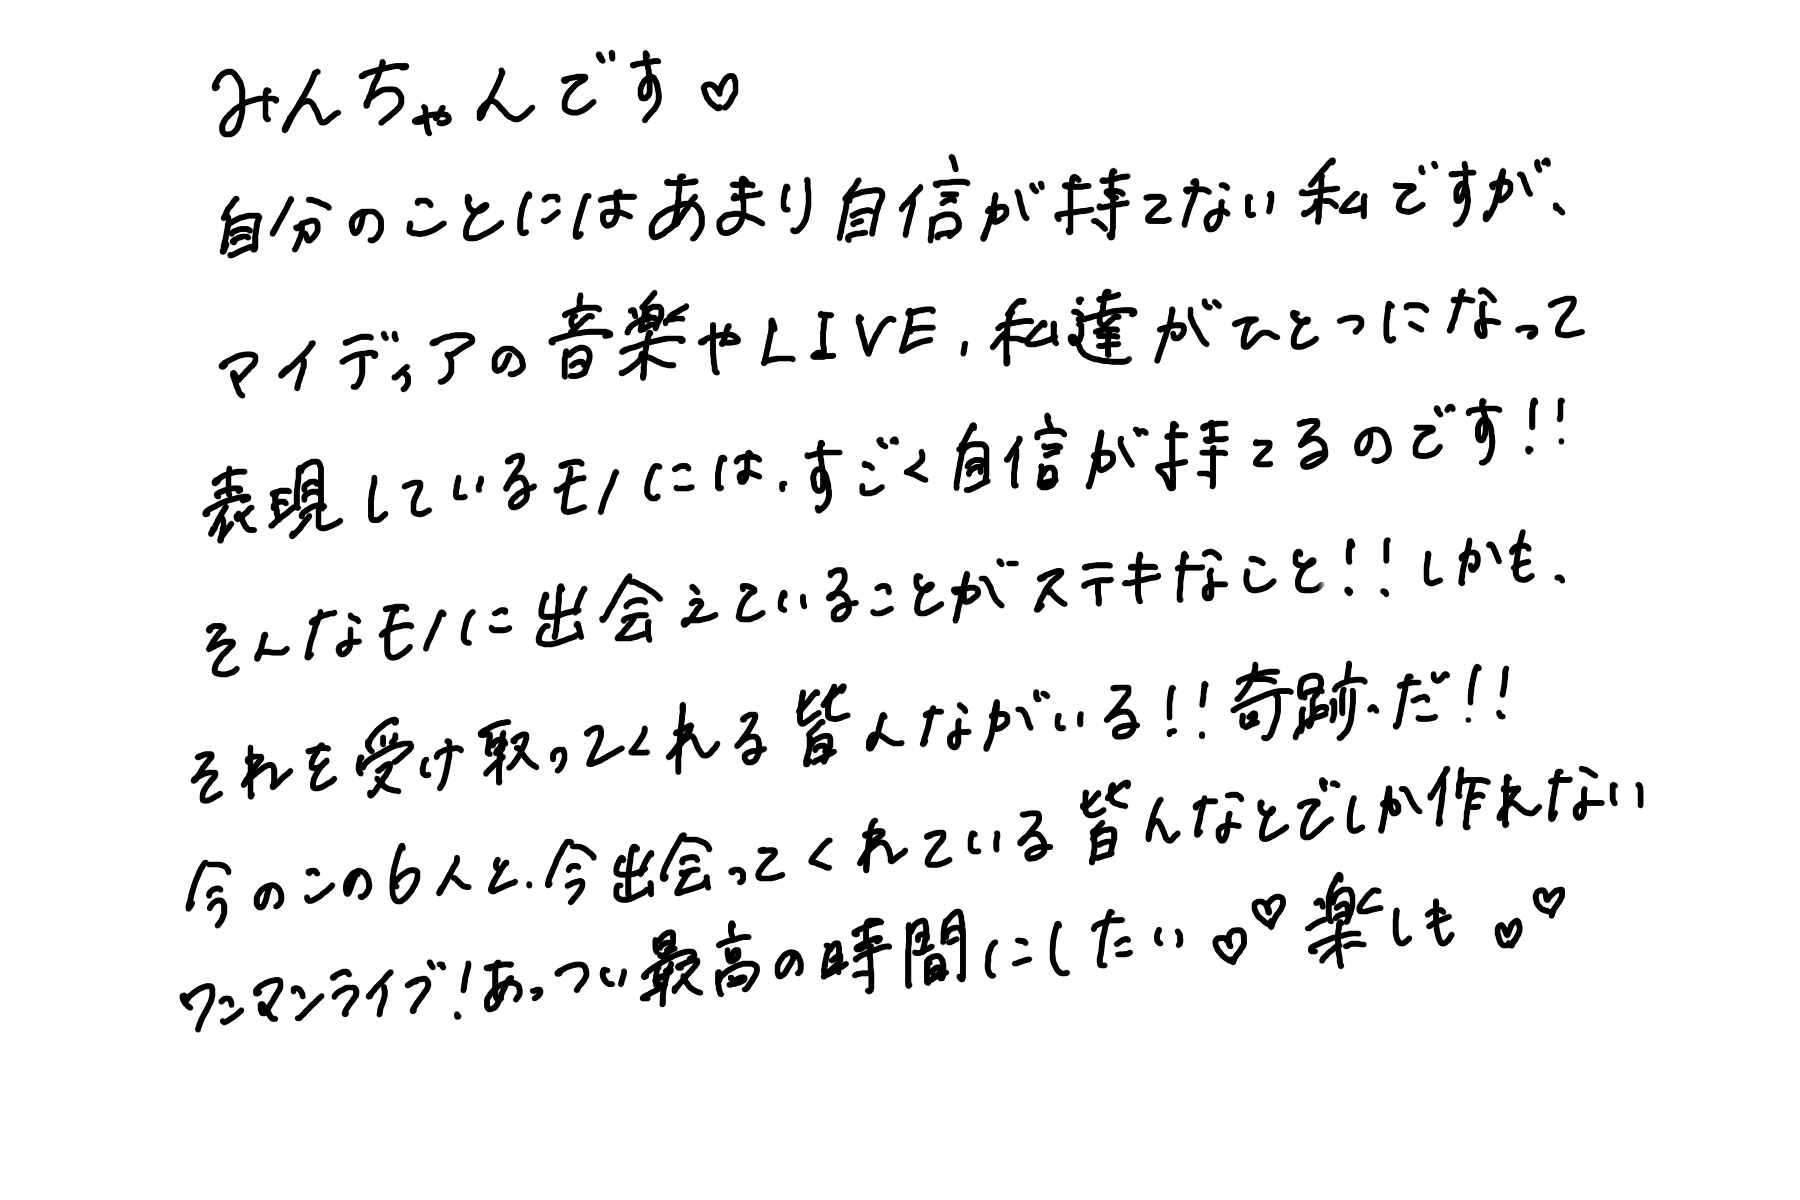 みんちゃんです♡
自分のことにはあまり自信が持てない私ですが、
マイディアの音楽やLIVE、私達がひとつになって
表現しているモノには、すごく自信が持てるのです!!
そんなモノに出会えていることがステキなこと!!しかも、
それを受け取ってくれる皆んながいる!!奇跡だ!!
今のこの6人と、今出会ってくれている皆んなとでしか作れない
ワンマンライブ!あっつい最高の時間にしたい♡♡楽しも♡♡